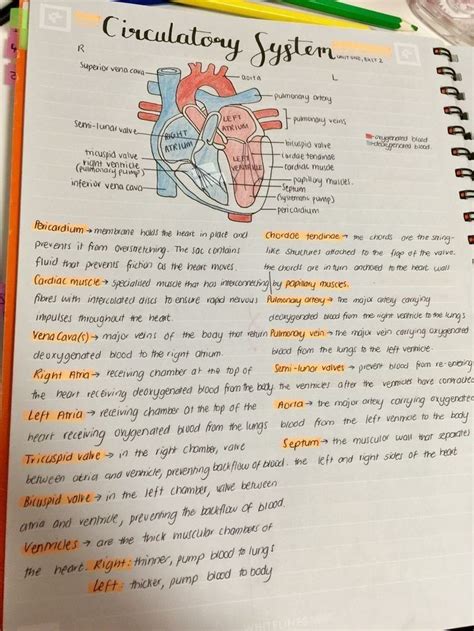 Circulatory System
UNIT ONE, EXIT 2
R
L
Superior vena cava
aorta
pulmonary artery
pulmonary veins
Semi-lunar valve
LEFT ATRIUM
RIGHT ATRIUM
oxygenated blood
deoxygenated blood.
tricuspid valve
right ventricle
(pulmonary pump)
inferior vena cava
LEFT VENTRICLE
bicuspid valve
cordae tendinae
cardiac muscle
papillary muscles.
Septum
(systemic pump)
pericardium
Pericardium → membrane holds the heart in place and
prevents it from overstretching. The sac contains
fluid that prevents friction as the heart moves.
Cardiac muscle → specialised muscle that has interconnecting
fibres with intercalated discs to ensure rapid nervous
impulses throughout the heart.
Vena Cava(s) → major veins of the body that return
deoxygenated blood to the right atrium.
Right Atria → receiving chamber at the top of
the heart receiving deoxygenated blood from the body.
Left Atria → receiving chamber at the top of the
heart receiving oxygenated blood from the lungs
Tricuspid valve → in the right chamber, valve
between atria and ventricle, preventing backflow of blood.
Bicuspid valve → in the left chamber, valve between
atria and ventricle, preventing the backflow of blood.
Ventricles → are the thick muscular chambers of
the heart. Right: thinner, pump blood to lungs
Left: thicker, pump blood to body
Chordae tendinae → the chords are the string-
like structures attached to the flap of the valve.
the chords are in turn anchored to the heart wall
by papillary muscles.
Pulmonary artery → the major artery carrying
deoxygenated blood from the right ventricle to the lungs
Pulmonary vein → the major vein carrying oxygenated
blood from the lungs to the left ventricle
Semi-lunar valves → prevent blood from re-entering
the ventricles after the ventricles have contracted
Aorta → the major artery carrying oxygenated
blood from the left ventricle to the body
Septum → the muscular wall that separates
the left and right sides of the heart